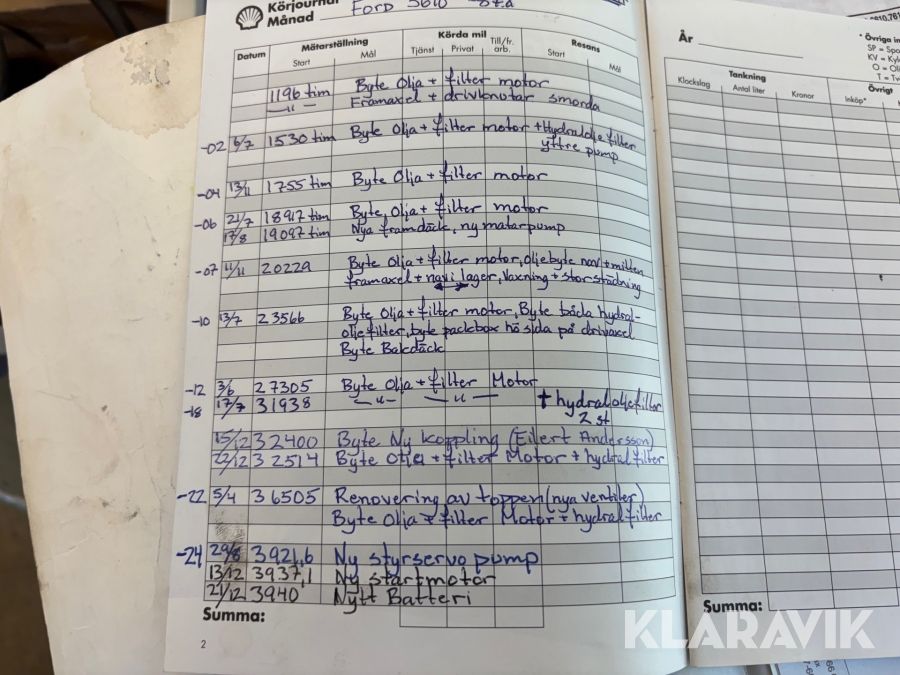 Körjournal
Månad Ford 5610
Datum Mätarställning Körda mil Resans
Start Mål Tjänst Privat Till/fr. arb. Start Mål
1196 tim Byte Olja + filter motor
— " — Framaxel + drivknutar smorda
-02 6/7 1530 tim Byte Olja + filter motor + Hydralolje filter
yttre pump
-04 13/11 1755 tim Byte Olja + filter motor
-06 21/7 18917 tim Byte Olja + filter motor
17/8 19097 tim Nya framdäck, ny matarpump
-07 11/11 20229 Byte Olja + filter motor, oljebyte nav + mitten
framaxel + nav i lager, Vaxning + storstädning
-10 13/7 23566 Byte Olja + filter motor, Byte båda hydral-
oljefilter, byte packbox hö sida på drivaxel
Byte Bakdäck
-12 3/6 27305 Byte Olja + filter Motor
-18 17/7 31938 — " — — " — + hydraloljefilter
2 st
15/12 32400 Byte Ny koppling (Eilert Andersson)
23/12 32514 Byte Olja + filter Motor + hydralfilter
-22 5/4 36505 Renovering av toppen (nya ventiler)
Byte Olja + filter Motor + hydralfilter
-24 29/8 3921,6 Ny styrservo pump
13/12 3937,1 Ny startmotor
21/12 3940 Nytt Batteri
Summa:
2
År
* Övriga in
SP = Spo
KV = Kyl
O = Oli
T = Tv
Tankning Övrigt
Klockslag Antal liter Kronor Inköp*
Summa:
KLARAVIK